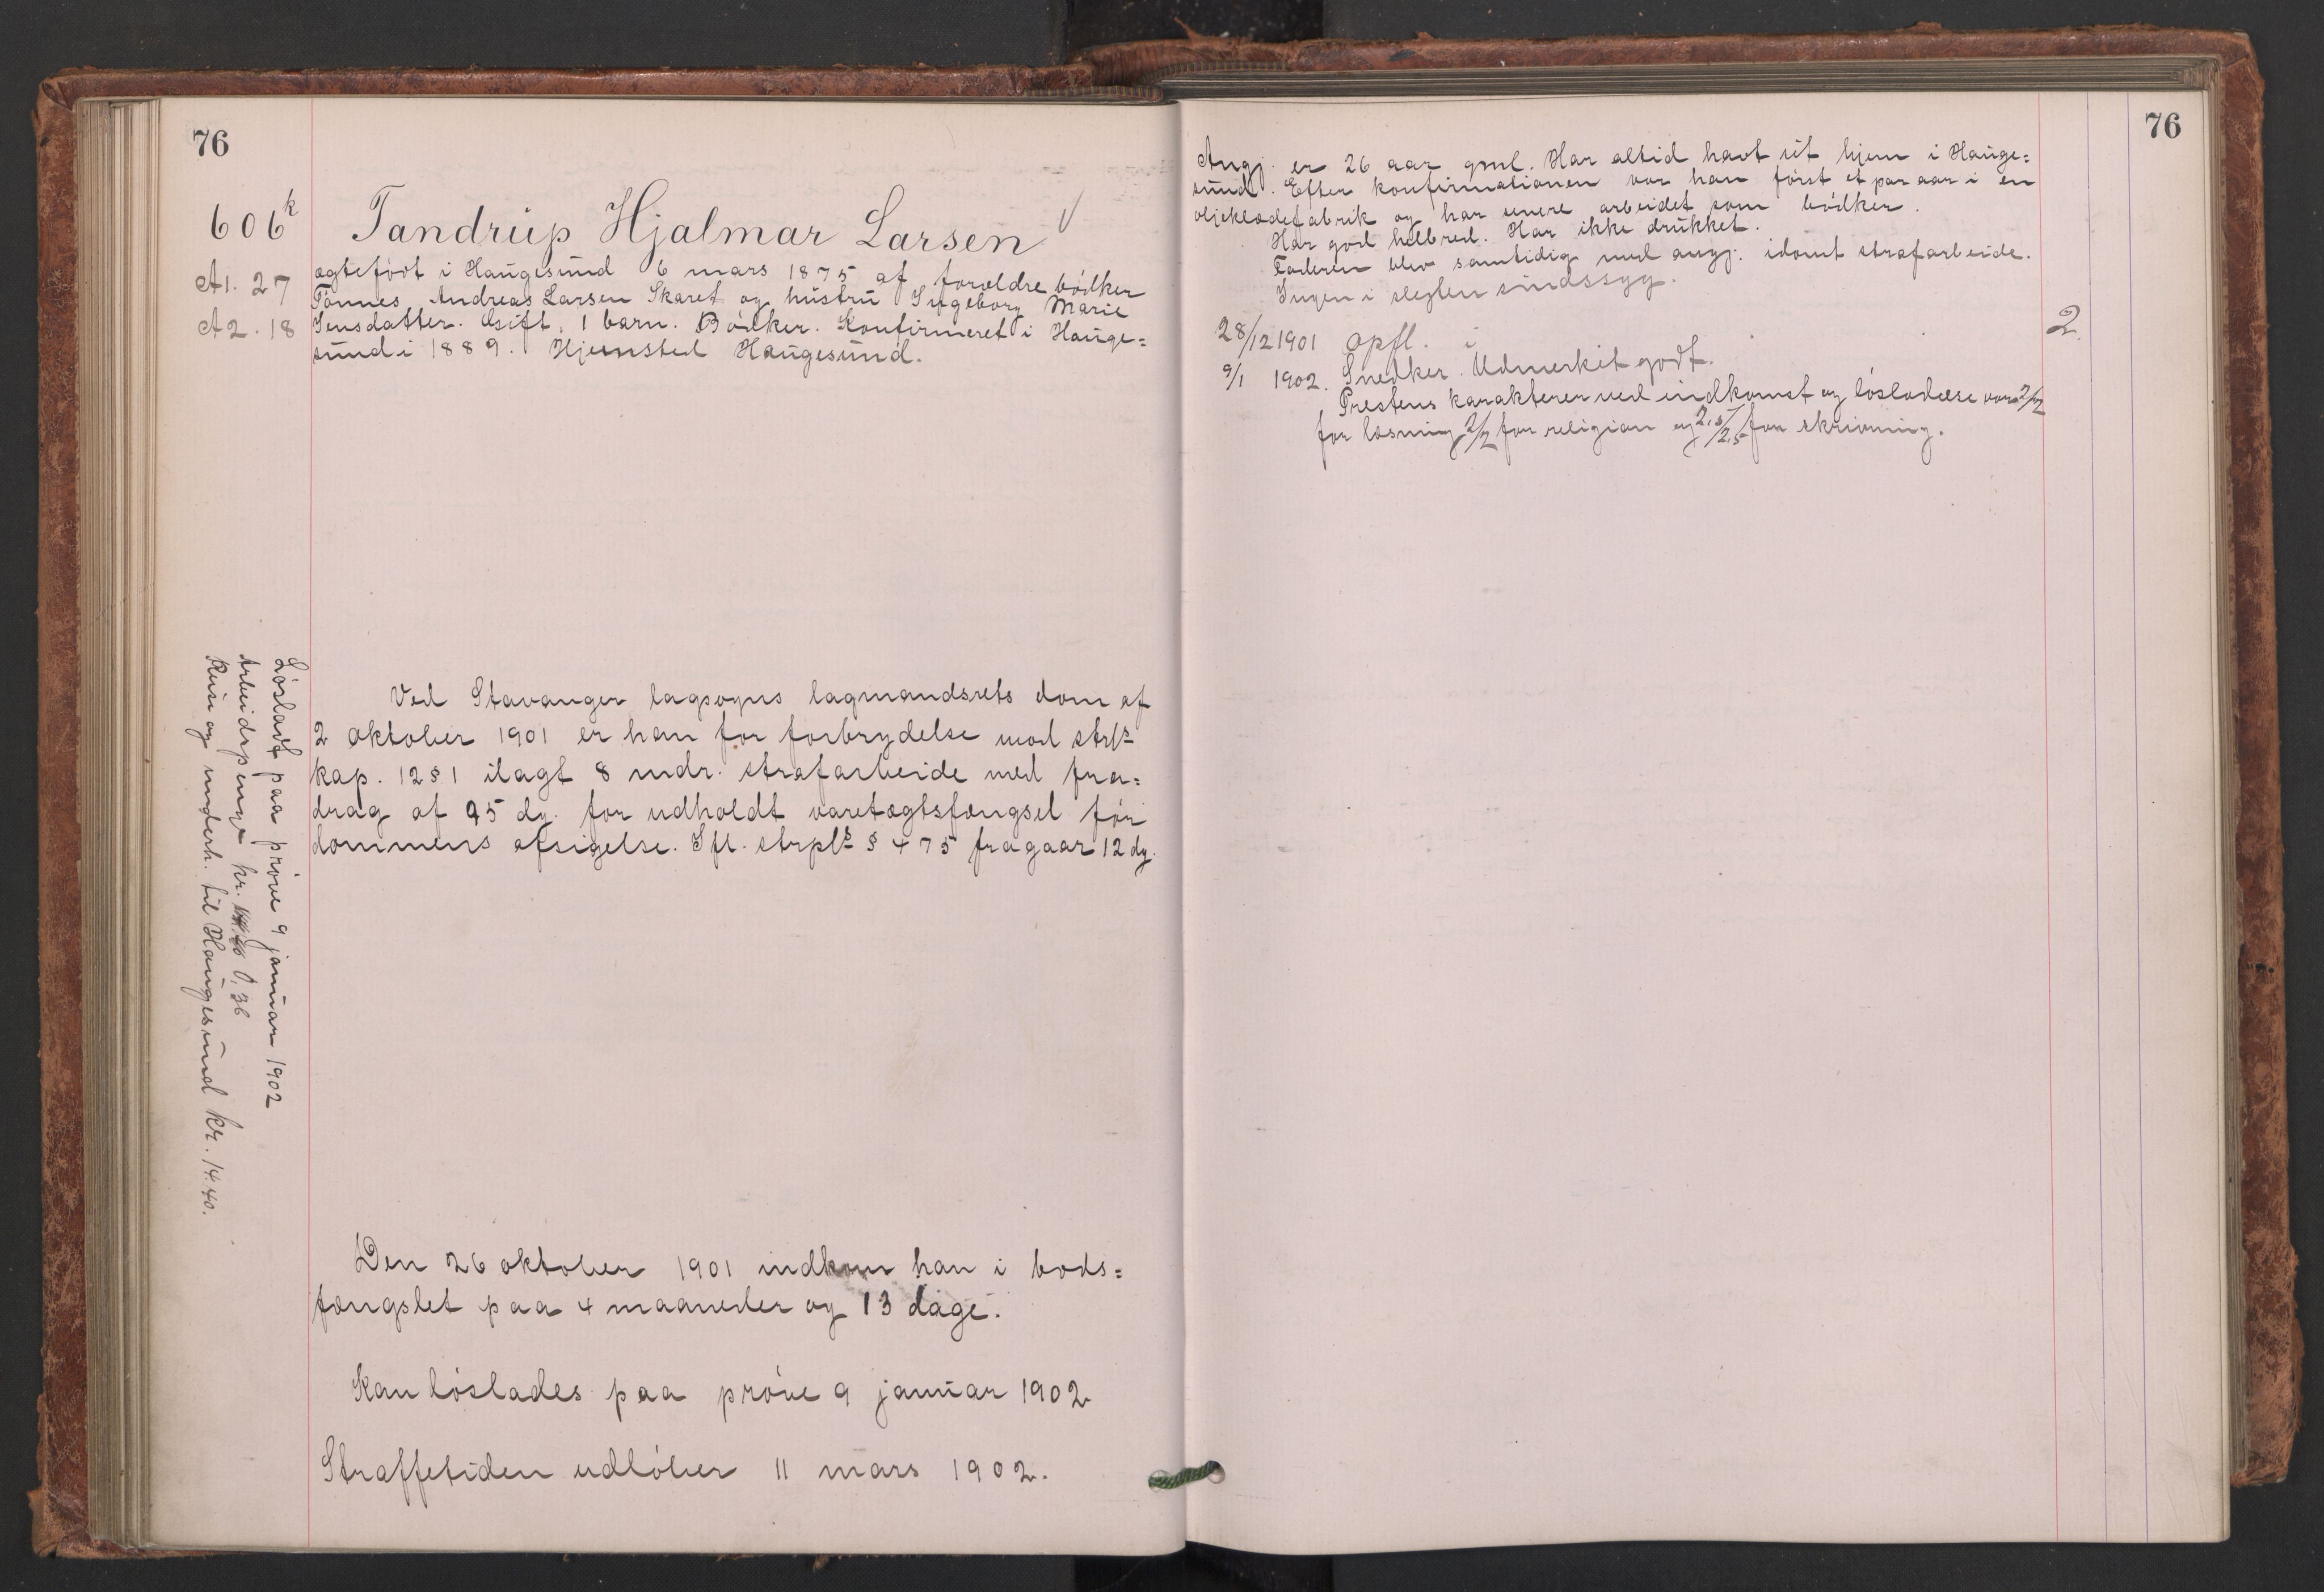 76
606k
A1. 27
A2. 18
Tandrup Hjalmar Larsen
ægtefødt i Haugesund 6 mars 1875 af forældre bødker
Tønnes Andreas Larsen Skaret og hustru Ingeborg Marie
Jensdatter. Gift, 1 barn. Bødker. Konfirmeret i Hauge=
sund i 1889. Hjemsted Haugesund.
Ved Stavanger lagsogns lagmandsrets dom af
2 oktober 1901 er han for forbrydelse mod strls
kap. 12 § 1 ilagt 8 mdr. strafarbeide med fra=
drag af 95 dg. for udholdt varetægtsfængsel før
dommens afsigelse. Ifl. strpls § 475 fragaar 12 dg.
Løsladt paa prøve 9 januar 1902
Arbeidspenge kr. 0,36
Reise og underh. til Haugesund kr. 14.40.
Den 26 oktober 1901 indkom han i bods=
fængslet paa 4 maaneder og 13 dage.
Kan løslades paa prøve 9 januar 1902
Straffetiden udløber 11 mars 1902.
76
Angj. er 26 aar gml. Har altid havt sit hjem i Hauge=
sund. Efter konfirmationen var han først et par aar i en
oljeklædefabrik og har senere arbeidet som bødker.
Har god helbred. Har ikke drukket.
Faderen blev samtidig med angj. idømt strafarbeide.
Ingen i slegten sindssyg.
28/12 1901 opfl. 2.
9/1 1902. Snedker. Udmerket godt.
Prestens karakterer ved indkomst og løsladelse var 2/2
for læsning 2/2 for religion og 2,5/2,5 for skrivning.